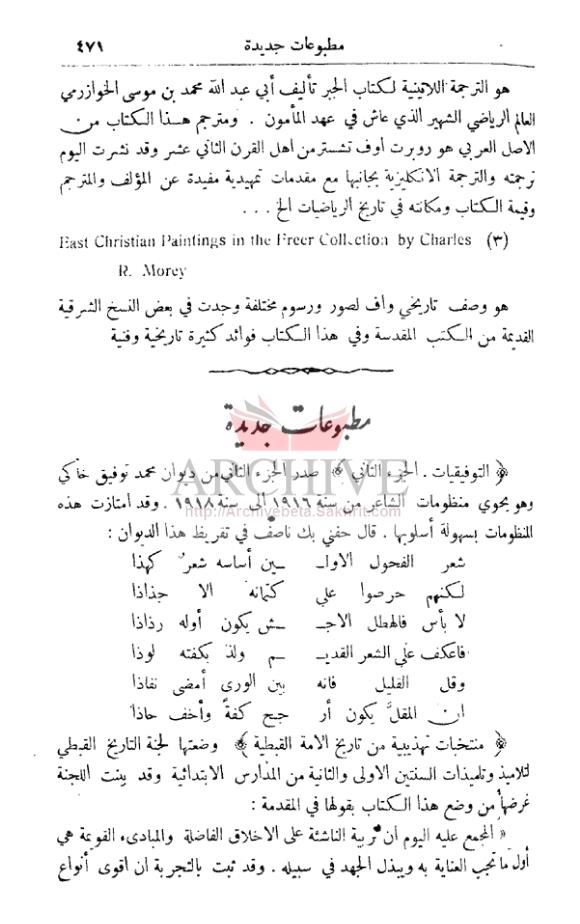 مطبوعات جديدة ٤٧١
هو الترجمة اللاتينية لكتاب الجبر تأليف أبي عبد الله محمد بن موسى الخوازرمي
العالم الرياضي الشهير الذي عاش في عهد المأمون . ومترجم هذا الكتاب من
الاصل العربي هو روبرت أوف تشسترمن اهل القرن الثاني عشر وقد نشرت اليوم
ترجمته والترجمة الانكليزية بجانبها مع مقدمات تمهيدية مفيدة عن المؤلف والمترجم
وقيمة الكتاب ومكانته في تاريخ الرياضيات الخ . . .
East Christian Paintings in the Freer Collection by Charles (٣)
R. Morey
هو وصف تاريخي واف لصور ورسوم مختلفة وجدت في بعض النسخ الشرقية
القديمة من الكتب المقدسة وفي هذا الكتاب فوائد كثيرة تاريخية وفنية
مطبوعات جديدة
ARCHIVE
http://Archivebeta.Sakhrit.com
﴿ التوفيقيات . الجزء الثاني ﴾ صدر الجزء الثاني من ديوان محمد توفيق خاكي
وهو يحوي منظومات الشاعر من سنة ١٩١٦ الى سنة ١٩١٨ . وقد امتازت هذه
المنظومات بسهولة أسلوبها . قال حفني بك ناصف في تقريظ هذا الديوان :
شعر الفحول الاولـ ـين أساسه شعر كهذا
لكنهم حرصوا على كتمانه الا جذاذا
لا بأس فالهطل الاجـ ـش يكون أوله رذاذا
فاعكف على الشعر القديـ ـم ولذ بكفته لوذا
وقل القليل فانه بين الورى أمضى نفاذا
ان المقلَّ يكون أر جح كفةً وأخف حاذا
﴿ منتخبات تهذيبية من تاريخ الامة القبطية ﴾ وضعتها لجنة التاريخ القبطي
لتلاميذ وتلميذات السنتين الاولى والثانية من المدارس الابتدائية وقد بينت اللجنة
غرضها من وضع هذا الكتاب بقولها في المقدمة :
« المجمع عليه اليوم ان تربية الناشئة على الاخلاق الفاضلة والمبادىء القويمة هي
أول ما تجب العناية به ويبذل الجهد في سبيله . وقد ثبت بالتجربة ان اقوى أنواع